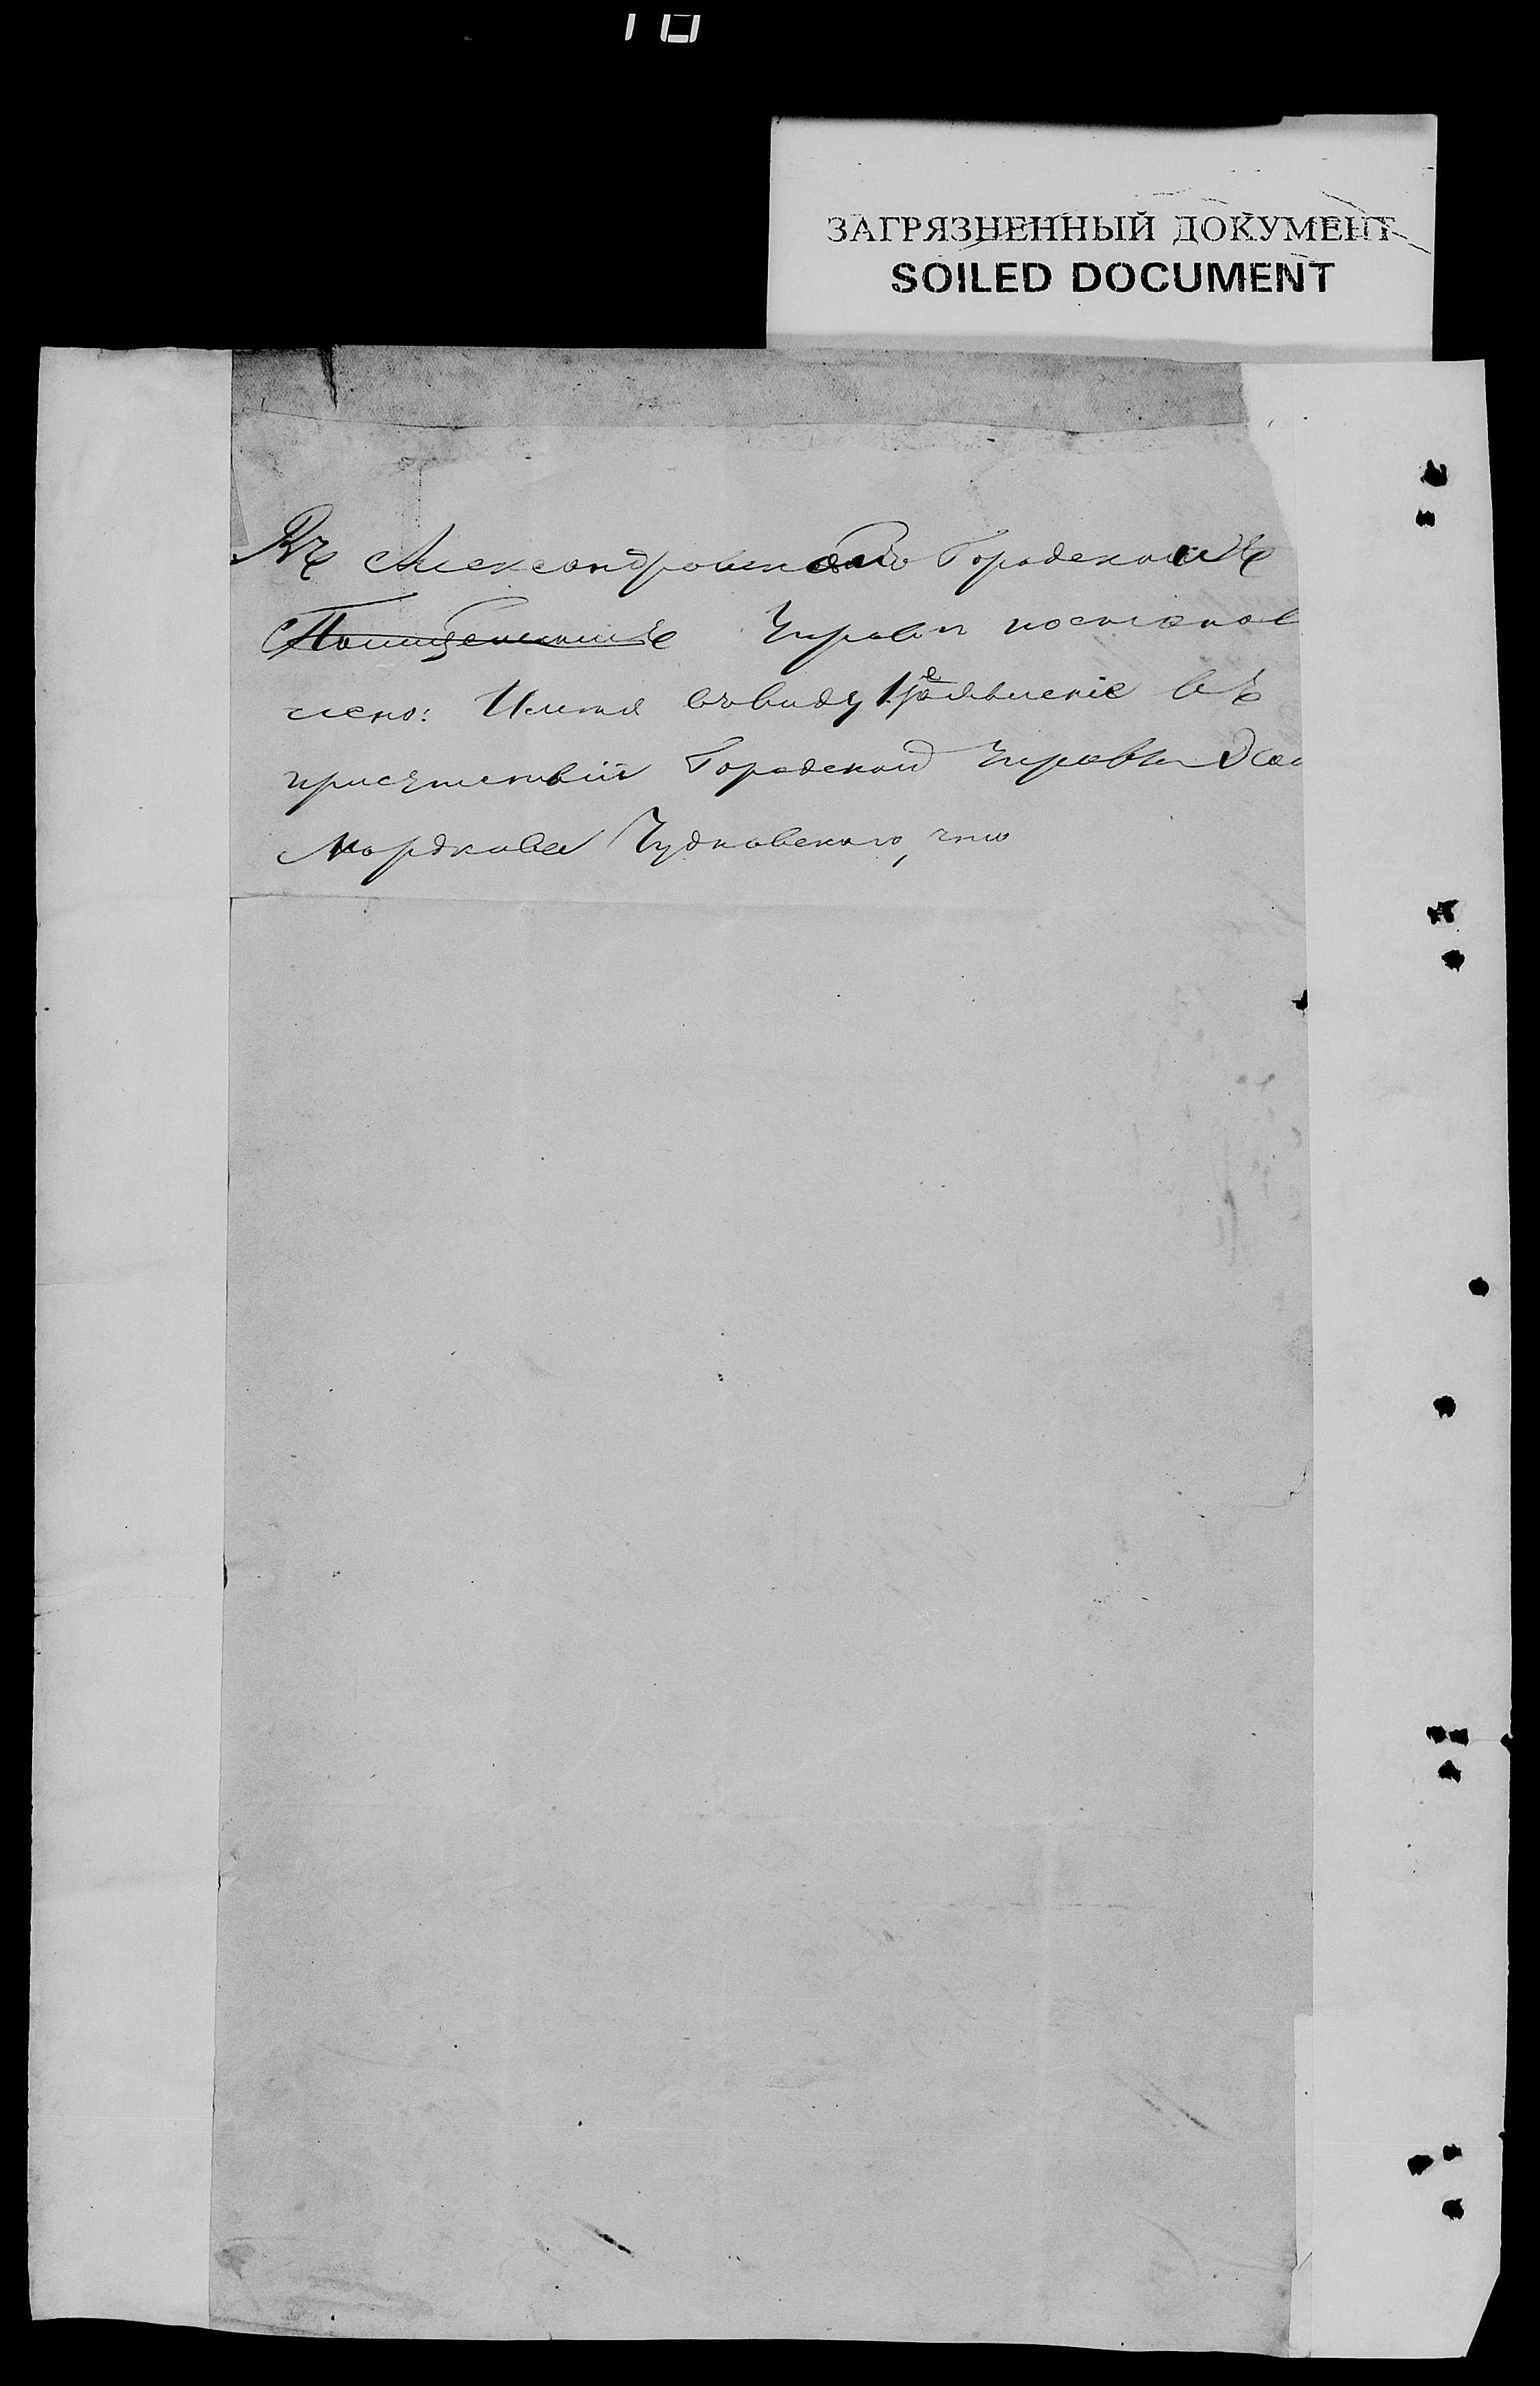 ЗАГРЯЗНЕННЫЙ ДОКУМЕНТ
SOILED DOCUMENT
Въ Александровской Городской
Управѣ постанов
лено: Имѣя ввиду 1) заявленіе въ
присутствіи Городской Управы
Мордкова Чудновскаго, что